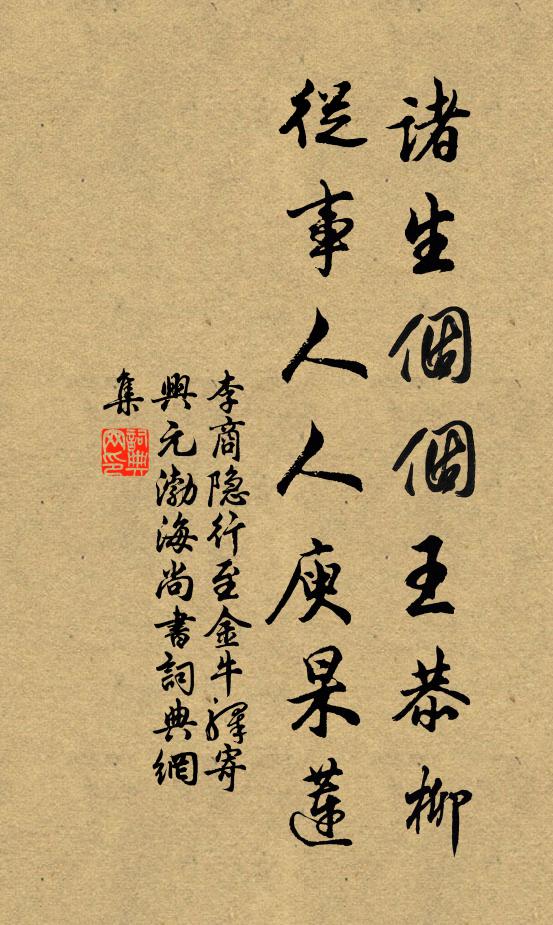 諸生個個王恭柳
從事人人庾杲蓮
李商隐行至金牛驛寄
興元渤海尚書詞典網
集
詞典
网印